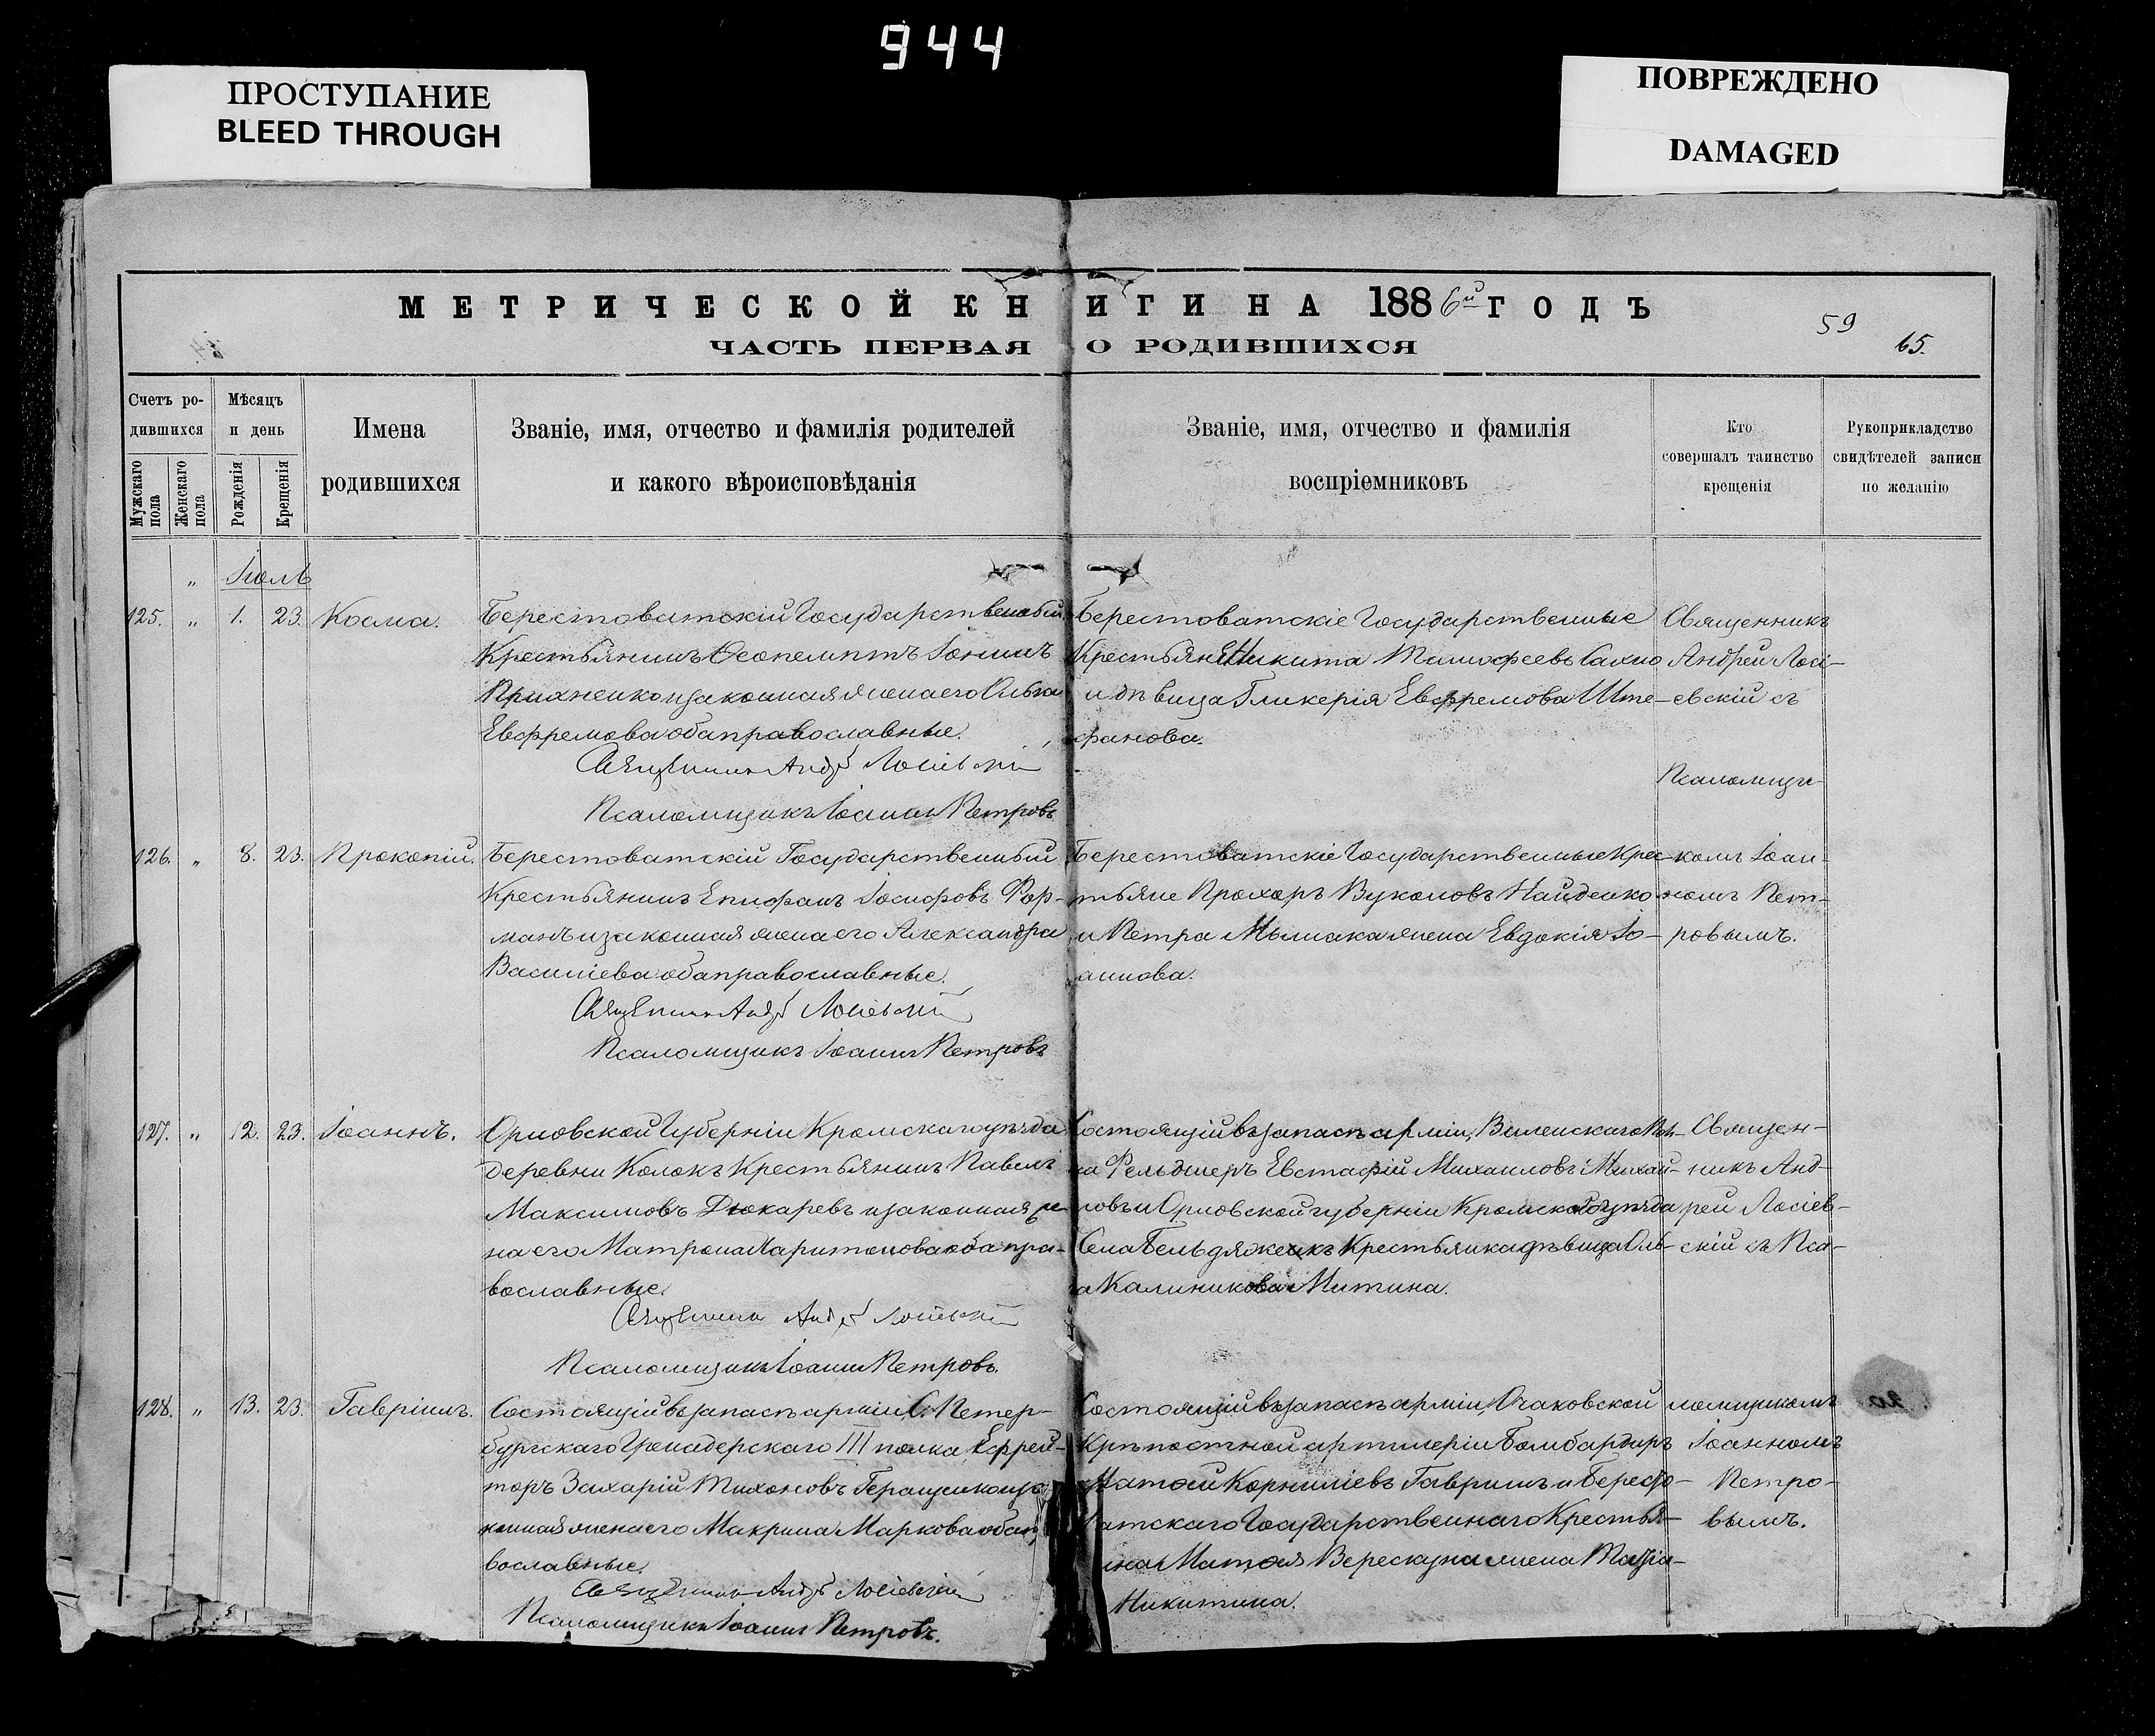 944
ПРОСТУПАНИЕ
BLEED THROUGH
ПОВРЕЖДЕНО
DAMAGED
МЕТРИЧЕСКОЙ КНИГИ НА 1886й ГОДЪ
ЧАСТЬ ПЕРВАЯ О РОДИВШИХСЯ
59
65.
Счетъ ро-
дившихся
Мужскаго пола
Женскаго пола
Мѣсяцъ
и день
Рожденія
Крещенія
Имена
родившихся
Званіе, имя, отчество и фамилія родителей
и какого вѣроисповѣданія
Званіе, имя, отчество и фамилія
воспріемниковъ
Кто
совершалъ таинство
крещенія
Рукоприкладство
свидѣтелей записи
по желанію
" Іюль
125. " 1. 23. Косма.
Берестоватскій Государственный
Крестьянинъ Ѳеопемптъ Іонинъ
и законная жена его Ольга
Евфремова оба православные.
Священникъ Андрей Лосіевскій
Псаломщикъ Іоаннъ Петровъ
Берестоватскіе Государственные
Крестьяне Никита Тимофеевъ Сахно
и дѣвица Гликерія ЕвфремоваШте-
фанова.
Священникъ
Андрей Лосі-
евскій съ
Псаломщи-
126. " 8. 23. Прокопій.
Берестоватскій Государственный
Крестьянинъ Епифанъ Іосифовъ Фор-
манъ и законная жена его Александра
Василіева оба православные.
Священникъ Андрей Лосіевскій
Псаломщикъ Іоаннъ Петровъ
Берестоватскіе Государственные Крес-
тьяне Прохоръ Вуколовъ Найденко
и Петра жена Евдокія Іо-
аннова.
комъ Іоан-
номъ Пет-
ровымъ.
127. " 12. 23. Іоаннъ.
Орловской Губерніи Кромскаго уѣзда
деревни Колокъ Крестьянинъ Павелъ
Максимовъ Дюкаревъ и законная же-
на его Матрона Харитонова оба пра-
вославные.
Священникъ Андрей Лосіевскій
Псаломщикъ Іоаннъ Петровъ.
Состоящій въ запасѣ арміи, Виленскаго Пол-
ка Фельдшеръ Евстафій Михаиловъ Михай-
ловъ и Орловской губерніи Кромскаго уѣзда
Села Крестьянка дѣвица Оль-
а Калиникова Митина.
Священ-
никъ Анд-
рей Лосіев-
скій съ Пса-
128. " 13. 23. Гавріилъ.
Состоящій въ запасѣ арміи С. Петер-
бургскаго Гренадерскаго III полка Ефрей-
торъ Захарій Тихоновъ Геращенко и за-
конная жена его Макрина Маркова оба пра
вославные.
Священникъ Андрей Лосіевскій
Псаломщикъ Іоаннъ Петровъ.
Состоящій въ запасѣ арміи, Очаковской
Крѣпостной артилеріи Бомбардиръ
Корниліевъ Гавришъ и Бересто-
ватскаго Государственнаго Крестья-
нина жена Марія
Никитина.
ломщикомъ
Іоанномъ
Петро-
вымъ.